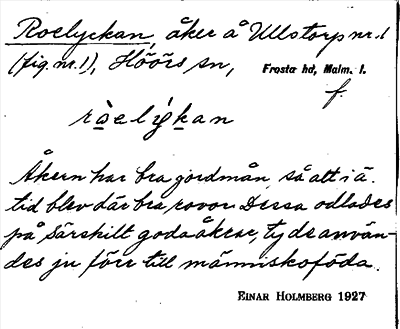 Roelyckan, åker å Ullstorp nr. 1
(fig. nr. 1), Höörs sn, Frosta hd, Malm. l.
f.
ròelýkan
Åkern har bra jordmån, så att i ä.
tid blev där bra rovor. Dessa odlades
på särskilt goda åkrar, ty de använ-
des ju förr till människoföda.
EINAR HOLMBERG 1927